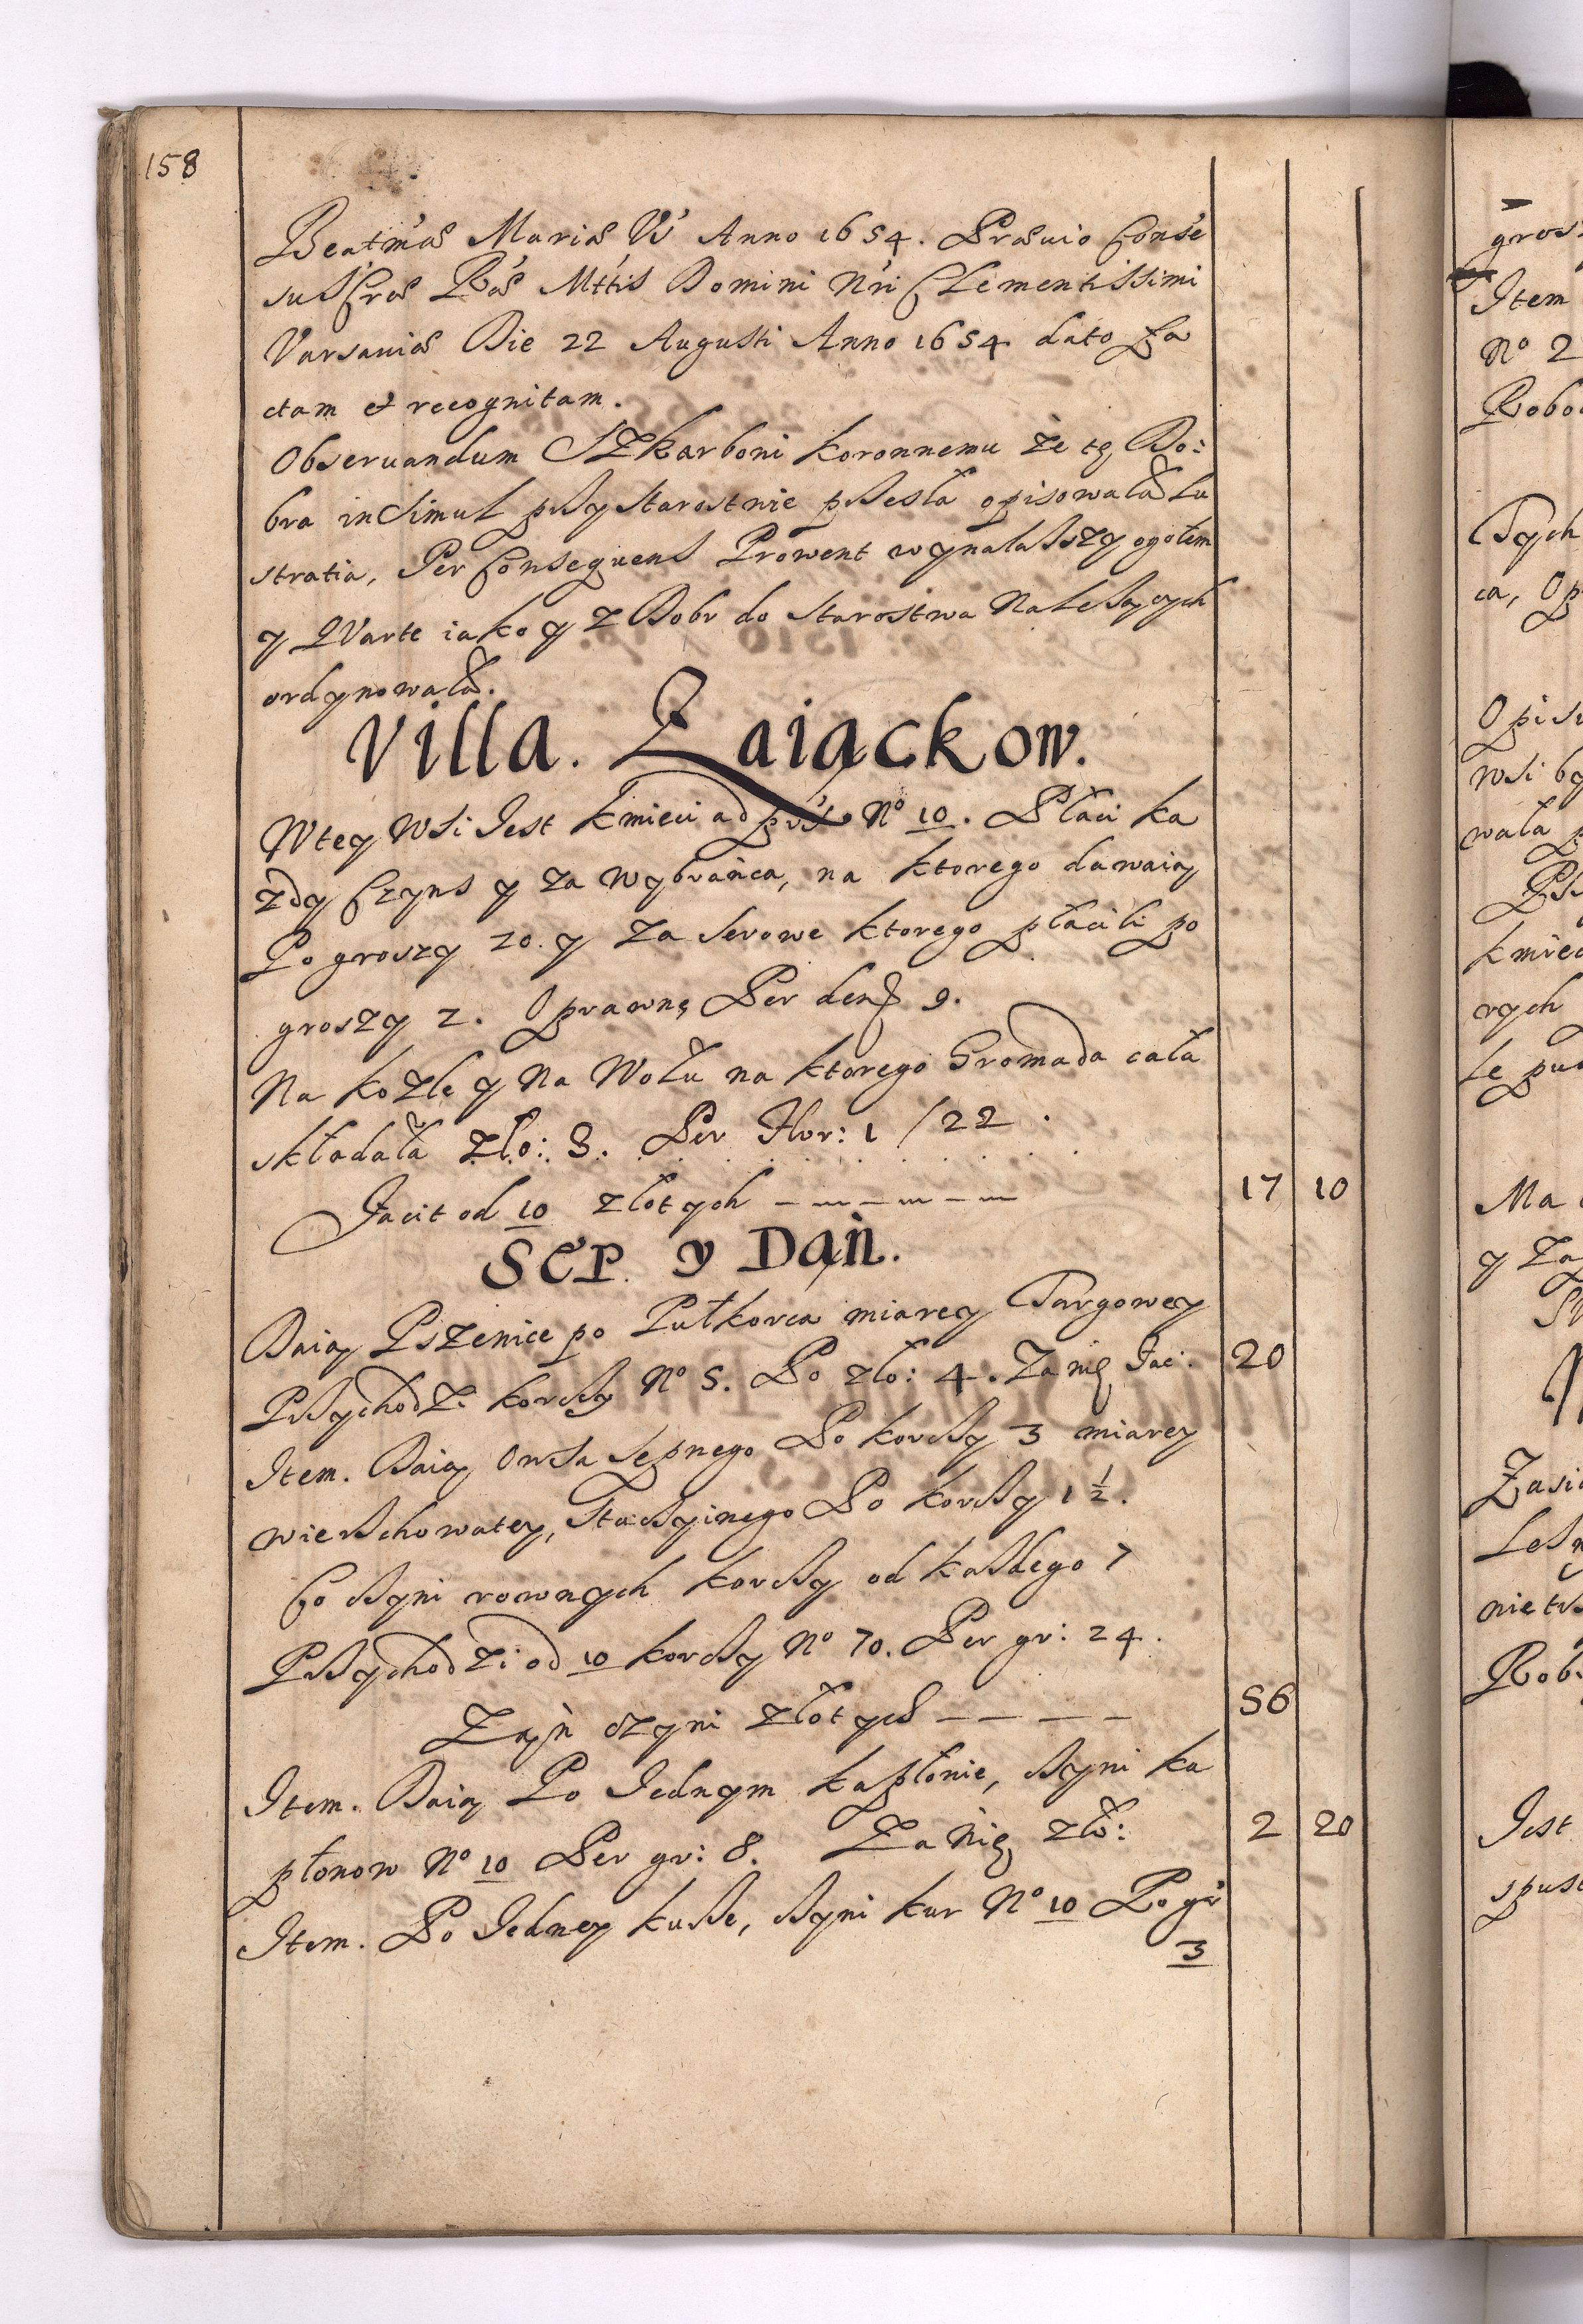 158
Beatmæ Mariæ V Anno 1654. Prævio Conse
su Sræ Ræ Mttis Domini Nri Clementissimi
Varsaviæ Die 22 Augusti Anno 1654 dato fa
ctam et recognitam.
Observandum Szkarboni koronnemu że tę Do:
bra insimul przy starostwie przeszła opisowała Lu
stratia, Per Consequens Prowent wynalaszy ogołem
y QVarte iako y z Dobr do starostwa Należących
ordynowała.
Villa. Zaiąckow.
W tey Wsi Jest kmieci ad pnś. No 10. Płaci ka
zdy Czyns y za wybrańca, na ktorego dawaią
Po groszy 20. y za serowe ktorego płacili po
groszy 2. Oprawne Per den 9.
Na kozle y Na Wołu na ktorego Gromada cała
składała zło: 8. Per Flor: 1 / 22.
Facit od 10 złotych 17 10
SEP. y Dań.
Daią Pszenice po Pułkorca miarey Targowey
Przychodzi korczy No 5. Po zło: 4. Za nię Fac: 20
Item. Daią Owsa sepnego Po korczy 3 miarey
wierzchowatey, Staczyinego Po korczy 1 1/2.
Co czyni rownych korczy od każdego 7
Przychodzi od 10 korczy No 70. Per gr: 24.
Zań czyni złotych 56
Item. Daią Po Jednym kapłonie, czyni ka
płonow No 10 Per gr: 8. Za Nię zło: 2 20
Item. Po Jedney kurze, czyni kur No 10 Po gr
3
gros
Item
No 2
Robo
Tych
ca, Op
Opisu
wsi by
wała p
kmiec
rych
Le pu
Ma
y Za
Zasi
Les
Rob
Jest
spust